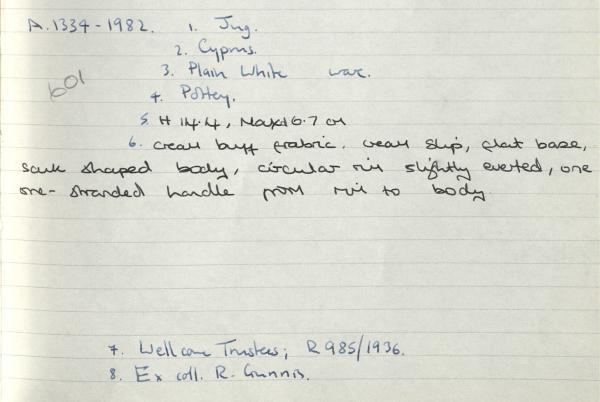 A.1334-1982. 1. Jug.
2. Cyprus.
601
3. Plain White ware.
4. Pottery.
5. H 14.4, Max d 6.7 cm
6. cream buff fabric. cream slip, flat base,
sack shaped body, circular rim slightly everted, one
one-stranded handle from rim to body
7. Wellcome Trustees; R985/1936.
8. Ex coll. R. Gunnis.